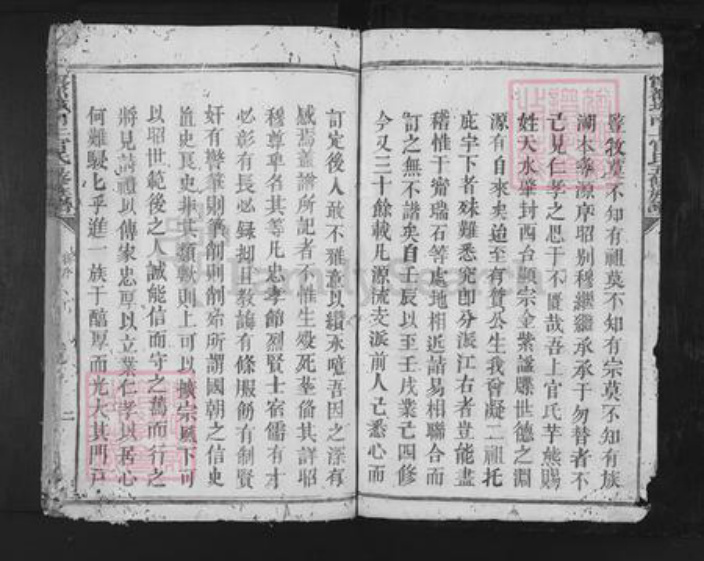 豎牧莫不知有祖莫不知有宗莫不知有族
溯木尋源序昭別穆繼繼承承于勿替者不
己見仁孝之思于不匱哉吾上官氏芋熊賜
姓天水肇封西台顯宗金紫謚牒世德之淵
源有自來矣迨至有贊公生我曾凝二祖托
庇宇下者殊難悉究即分派江右者豈能盡
稽惟于甯瑞石等處地相近誼易相聯合而
訂之無不諧矣自壬辰以至壬戌業已四修
今又三十餘載凡源流支派前人已悉心而
訂定後人敢不雅意以纘承噫吾因之深有
感焉蓋譜所記者不惟生歿死塋俻其詳昭
穆尊卑名其等凡忠孝節烈賢士宿儒有才
必彰有長必錄抑且教誨有條服飾有制賢
奸有辨筆則筆削則削殆所謂國朝之信史
直史良史非其類歟則上可以擴宗風下可
以昭世範後之人誠能信而守之舊而行之
將見詩禮以傳家忠厚以立業仁孝以居心
何難駸乎進一族于醕厚而光大其門戸
上官氏
修族譜
二
FamilySearch